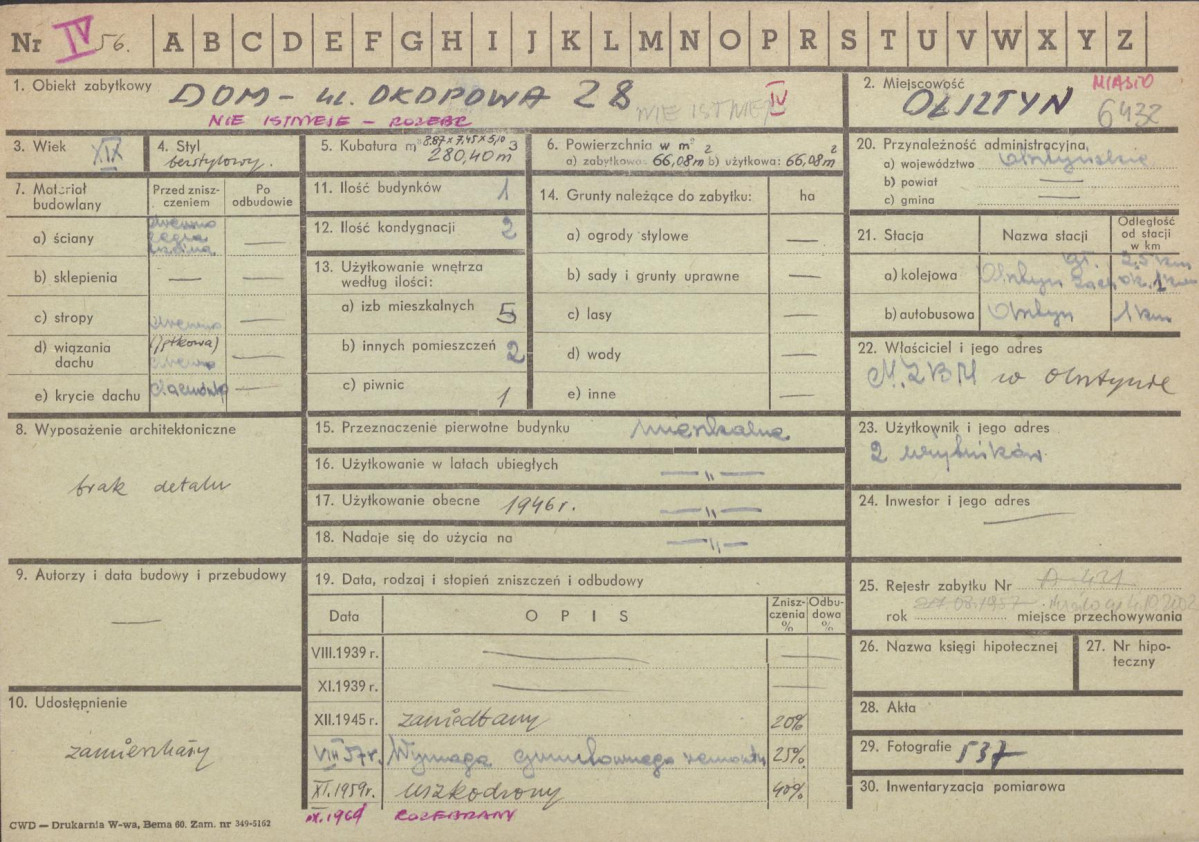 Nr IV 56. A B C D E F G H I J K L M N O P R S T U V W X Y Z
1. Obiekt zabytkowy DOM - ul. OKOPOWA 28 IV
NIE ISTNIEJE - ROZEBR NIE ISTNIEJE
2. Miejscowość MIASTO
OLSZTYN 6432
3. Wiek XIX
4. Styl
bezstylowy.
5. Kubatura m3 8.87 x 7,45 x 5,10
280,40 m3
6. Powierzchnia w m2
a) zabytkowa: 66,08m2 b) użytkowa: 66,08m2
20. Przynależność administracyjna
a) województwo Olsztyńskie
b) powiat —
c) gmina —
7. Materiał budowlany
Przed zniszczeniem
Po odbudowie
a) ściany drewno cegła —
b) sklepienia — —
c) stropy drewno —
d) wiązania dachu drewno —
e) krycie dachu dachówka —
11. Ilość budynków 1
12. Ilość kondygnacji 2
13. Użytkowanie wnętrza
według ilości:
a) izb mieszkalnych 5
b) innych pomieszczeń 2
c) piwnic 1
14. Grunty należące do zabytku: ha
a) ogrody stylowe —
b) sady i grunty uprawne —
c) lasy —
d) wody —
e) inne —
21. Stacja Nazwa stacji Odległość od stacji w km
a) kolejowa gł. 2,5 km
Olsztyn Zach. ok. 1 km
b) autobusowa Olsztyn 1 km
22. Właściciel i jego adres
M.ZBM w Olsztynie
8. Wyposażenie architektoniczne
brak detalu
15. Przeznaczenie pierwotne budynku mieszkalne
16. Użytkowanie w latach ubiegłych — „ —
17. Użytkowanie obecne 1946 r. — „ —
18. Nadaje się do użycia na — „ —
23. Użytkownik i jego adres
2 użytkników
24. Inwestor i jego adres
—
9. Autorzy i data budowy i przebudowy
—
19. Data, rodzaj i stopień zniszczeń i odbudowy
Data OPIS Zniszczenia % Odbudowa %
VIII.1939 r. — —
XI.1939 r. — —
XII.1945 r. zaniedbany 20%
VIII 57 r. Wymaga gruntownego remontu 25%
XI.1959r. uszkodzony 40%
IX.1964 ROZEBRANY
25. Rejestr zabytku Nr A-421
rok 08.1957 4.10.2002 miejsce przechowywania
26. Nazwa księgi hipotecznej
27. Nr hipoteczny
10. Udostępnienie
zamieszkały
28. Akta
29. Fotografie 537
30. Inwentaryzacja pomiarowa
CWD — Drukarnia W-wa, Bema 60. Zam. nr 349-5162